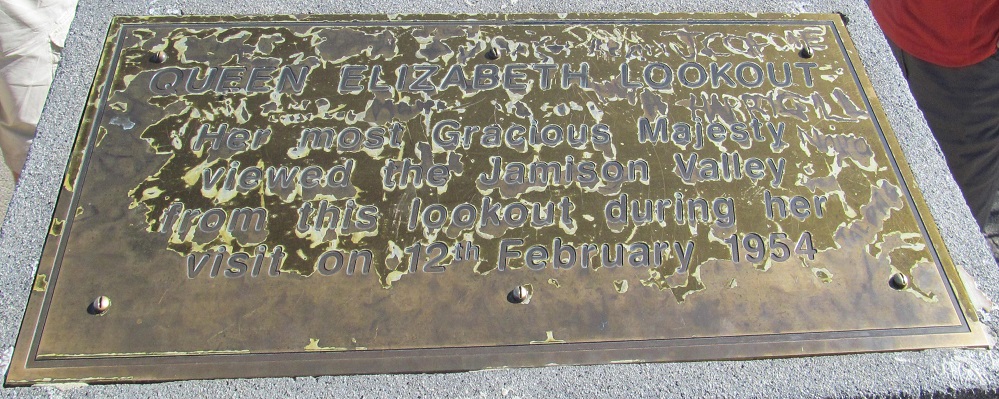 QUEEN ELIZABETH LOOKOUT
Her most Gracious Majesty
viewed the Jamison Valley
from this lookout during her
visit on 12th February 1954